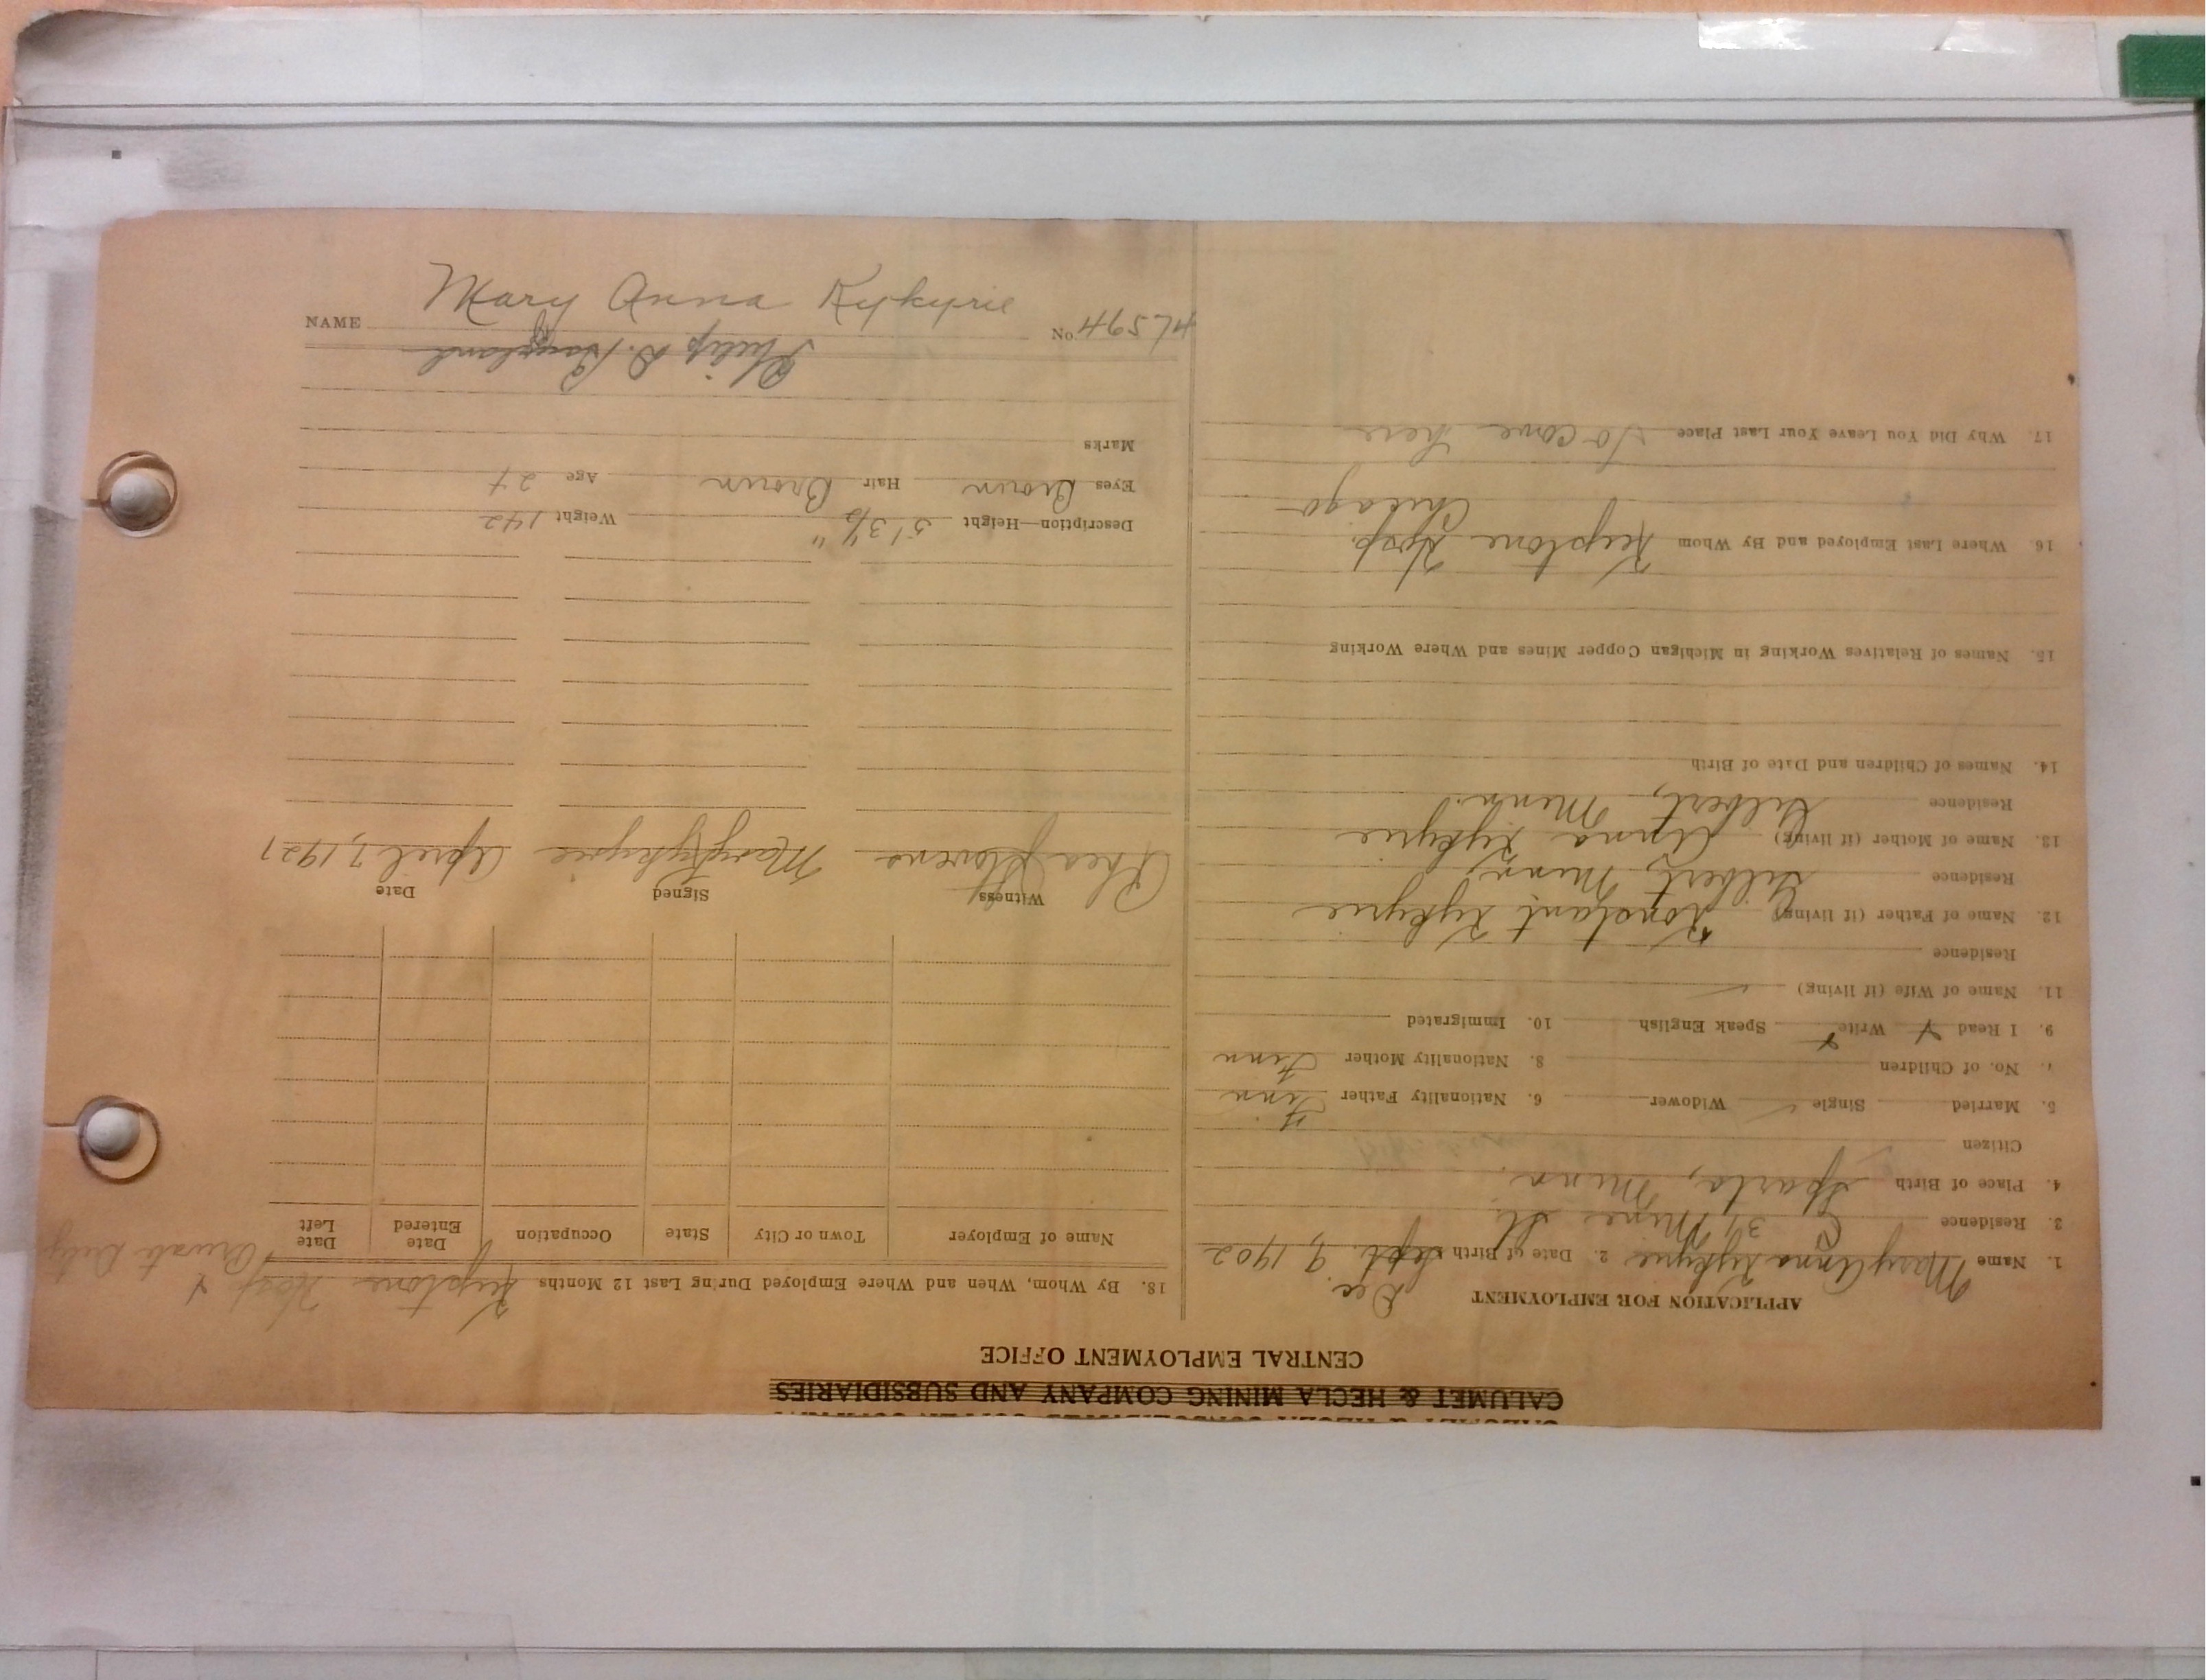 CALUMET & HECLA MINING COMPANY AND SUBSIDIARIES
CENTRAL EMPLOYMENT OFFICE
APPLICATION FOR EMPLOYMENT
1. Name Mary Anna Kykyrie 2. Date of Birth Sept. Dec. 9, 1902
3. Residence 31 Mine St.
4. Place of Birth Sparta, Minn.
Citizen
5. Married Single ✓ Widower 6. Nationality Father Finn
7. No. of Children 8. Nationality Mother Finn
9. I Read x Write x Speak English 10. Immigrated
11. Name of Wife (if living)
Residence
12. Name of Father (if living) Konstant Kykyrie
Residence Gilbert, Minn.
13. Name of Mother (if living) Anna Kykyrie
Residence Gilbert, Minn.
14. Names of Children and Date of Birth
15. Names of Relatives Working in Michigan Copper Mines and Where Working
16. Where Last Employed and By Whom Keystone Hosp.
Chicago
17. Why Did You Leave Your Last Place To come here
18. By Whom, When and Where Employed During Last 12 Months Keystone Hosp & Private Duty
Name of Employer Town or City State Occupation Date Entered Date Left
Witness Signed Date
Rhea Mary Kykyrie April 7, 1927
Description—Height 5' 3½" Weight 142
Eyes Brown Hair Brown Age 24
Marks
Philip D.
No. HL594
NAME Mary Anna Kykyrie